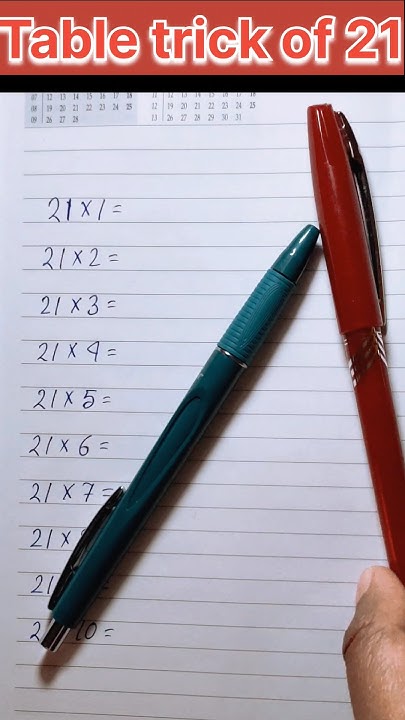 Table trick of 21
07 12 13 14 15 16 17 18
08 19 20 21 22 23 24 25
09 26 27 28
11 12 13 14 15 16 17 18
12 19 20 21 22 23 24 25
13 26 27 28 29 30 31
21 x 1 =
21 x 2 =
21 x 3 =
21 x 4 =
21 x 5 =
21 x 6 =
21 x 7 =
21 x
21
2 10 =